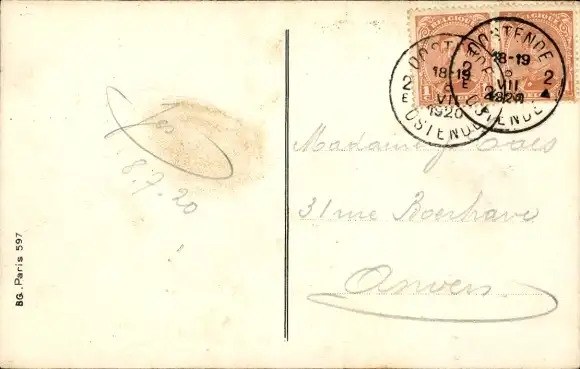 BELGIQUE BELGIQUE
1 1
OOSTENDE
2 18-19 2
E 8 E
VII
1920
OSTENDE
OOSTENDE
2 18-19 2
8
VII
1920
OSTENDE
8.7.20
Madame
31 rue Boerhave
Anvers
BG. Paris 597